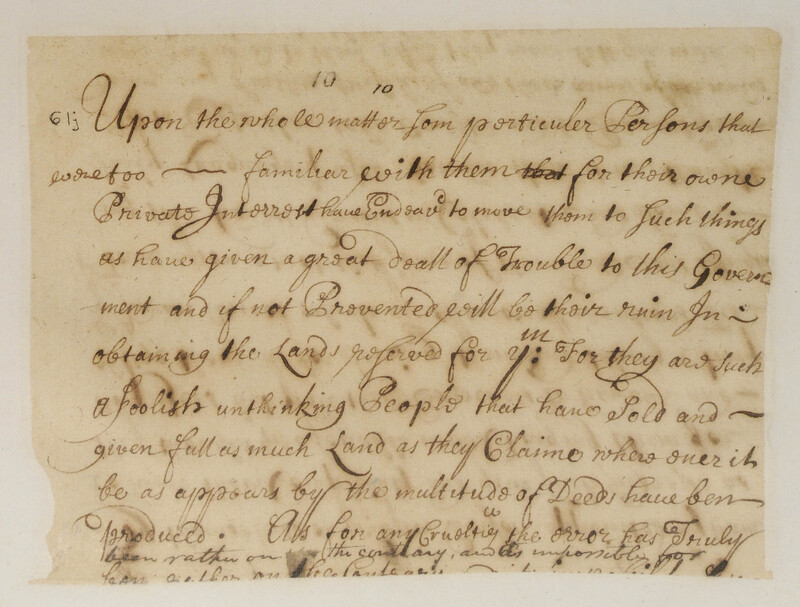 10 10
61j Upon the whole matter som perticuler Persons that
were too — familiar with them that for their owne
Private Interrest have Endeavd to move them to such things
as have given a great deall of Trouble to this Govern
ment and if not Prevented will be their ruin In ~
obtaining the Lands reserved for ym: For they are such
a foolish unthinking People that have Sold and ~
given full as much Land as they Claime where ever it
be as appears by the multitude of Deeds have ben
produced. As for any Crueltie the error has Truly
been rather on the contrary, and as impossible for
been rather on the Contrary